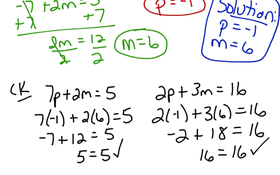 -7 + 2m = 5
+7 +7
2m = 12
2 2
m = 6
p = -1
Solution:
p = -1
m = 6
CK
7p + 2m = 5
7(-1) + 2(6) = 5
-7 + 12 = 5
5 = 5 ✓
2p + 3m = 16
2(-1) + 3(6) = 16
-2 + 18 = 16
16 = 16 ✓